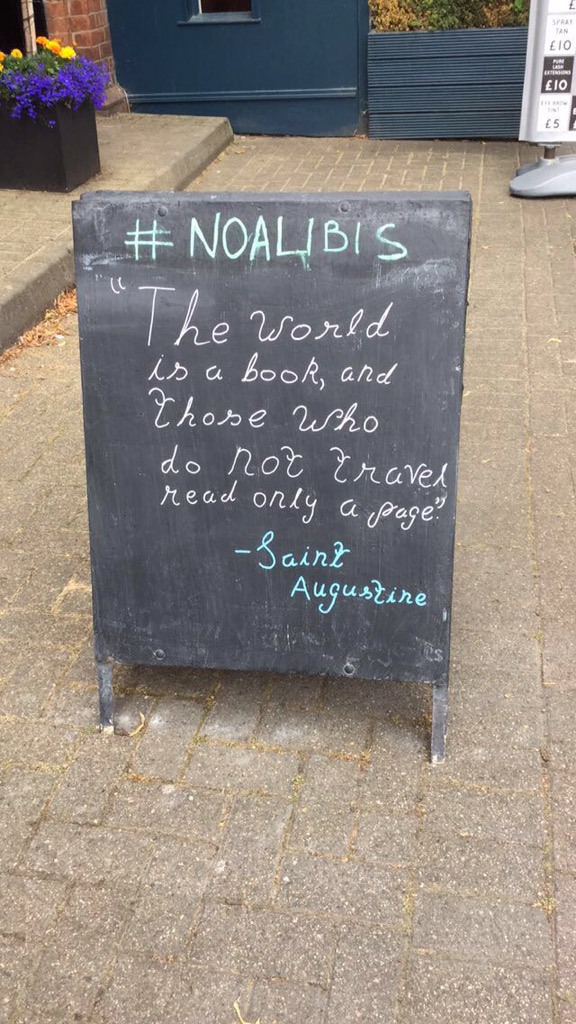 # NOALIBIS
"The world
is a book, and
those who
do not travel
read only a page."
-Saint
Augustine
£
SPRAY
TAN
£10
PURE
LASH
EXTENSIONS
£10
EYE BROW
TINT
£5